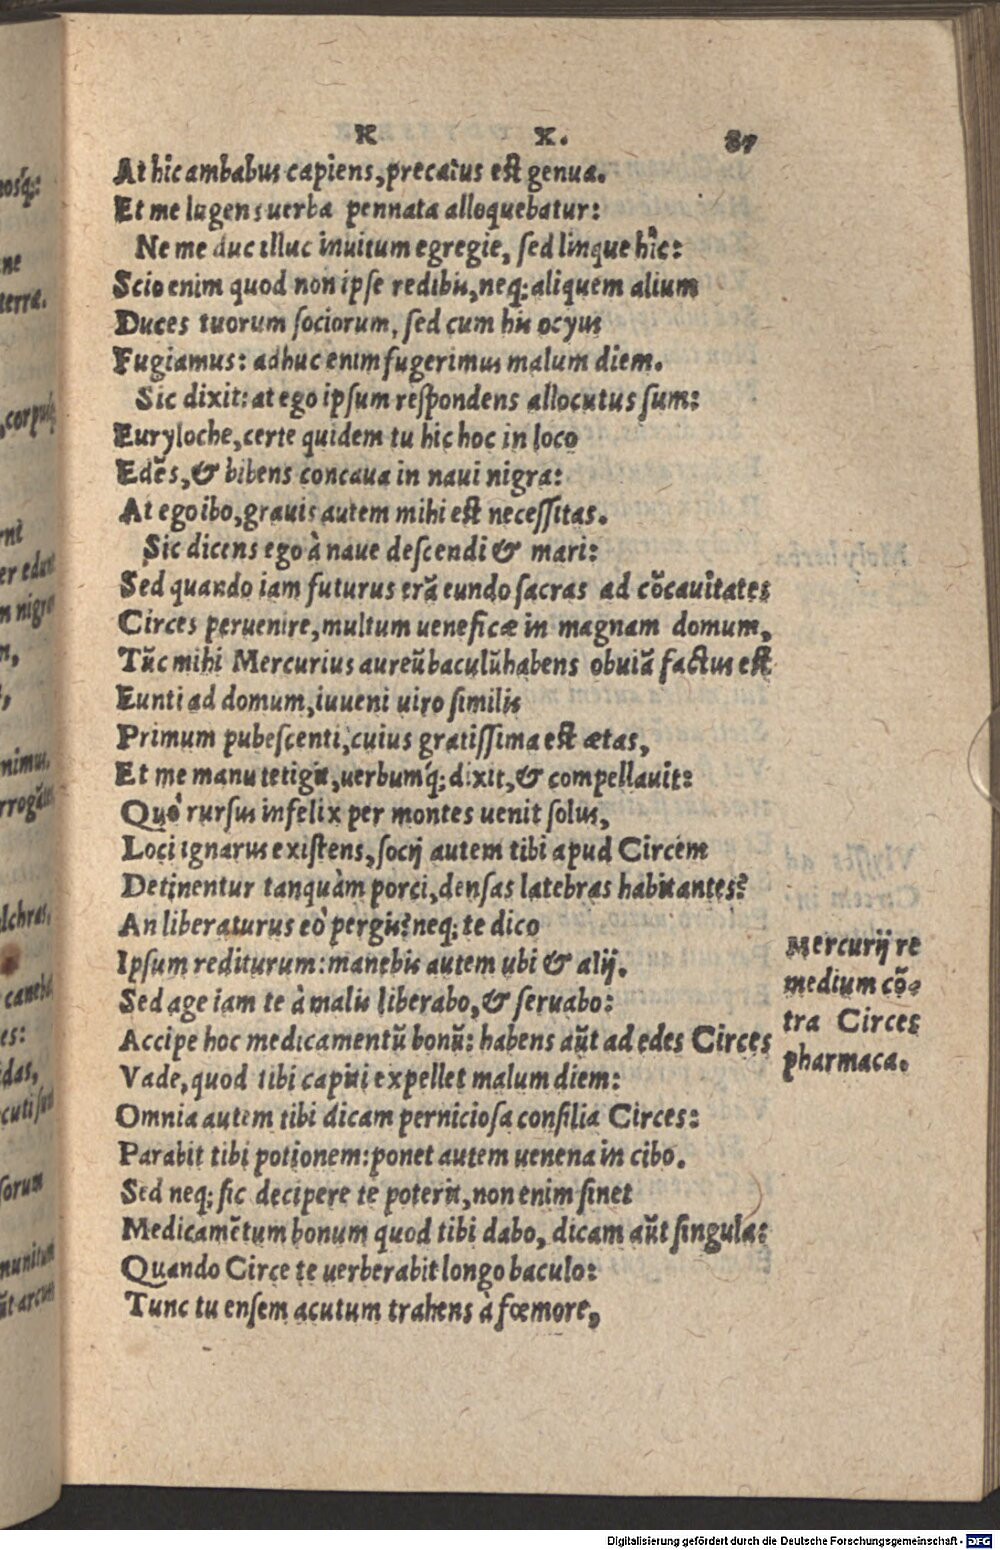 K X. 87
At hic ambabus capiens, precatus est genua.
Et me lugens uerba pennata alloquebatur:
Ne me duc illuc inuitum egregie, sed linque hîc:
Scio enim quod non ipse redibis, neq; aliquem alium
Duces tuorum sociorum, sed cum his ocyus
Fugiamus: adhuc enim fugerimus malum diem.
Sic dixit: at ego ipsum respondens allocutus sum:
Euryloche, certe quidem tu hic hoc in loco
Edēs, & bibens concaua in naui nigra:
At ego ibo, grauis autem mihi est necessitas.
Sic dicens ego à naue descendi & mari:
Sed quando iam futurus erā eundo sacras ad cōcauitates
Circes peruenire, multum ueneficæ in magnam domum,
Tūc mihi Mercurius aureū baculū habens obuiā factus est
Eunti ad domum, iuueni uiro similis
Primum pubescenti, cuius gratissima est ætas,
Et me manu tetigit, uerbumq́; dixit, & compellauit:
Quò rursus infelix per montes uenit solus,
Loci ignarus existens, socij autem tibi apud Circem
Detinentur tanquàm porci, densas latebras habitantes?
An liberaturus eò pergis? neq; te dico
Ipsum rediturum: manebis autem ubi & alij.
Sed age iam te à malis liberabo, & seruabo:
Accipe hoc medicamentū bonū: habens aūt ad edes Circes
Vade, quod tibi capiti expellet malum diem:
Omnia autem tibi dicam perniciosa consilia Circes:
Parabit tibi potionem: ponet autem uenena in cibo.
Sed neq; sic decipere te poterit, non enim sinet
Medicamētum bonum quod tibi dabo, dicam aūt singula:
Quando Circe te uerberabit longo baculo:
Tunc tu ensem acutum trahens à fœmore,
Mercurij re
medium cō-
tra Circes
pharmaca.
Digitalisierung gefördert durch die Deutsche Forschungsgemeinschaft - DFG